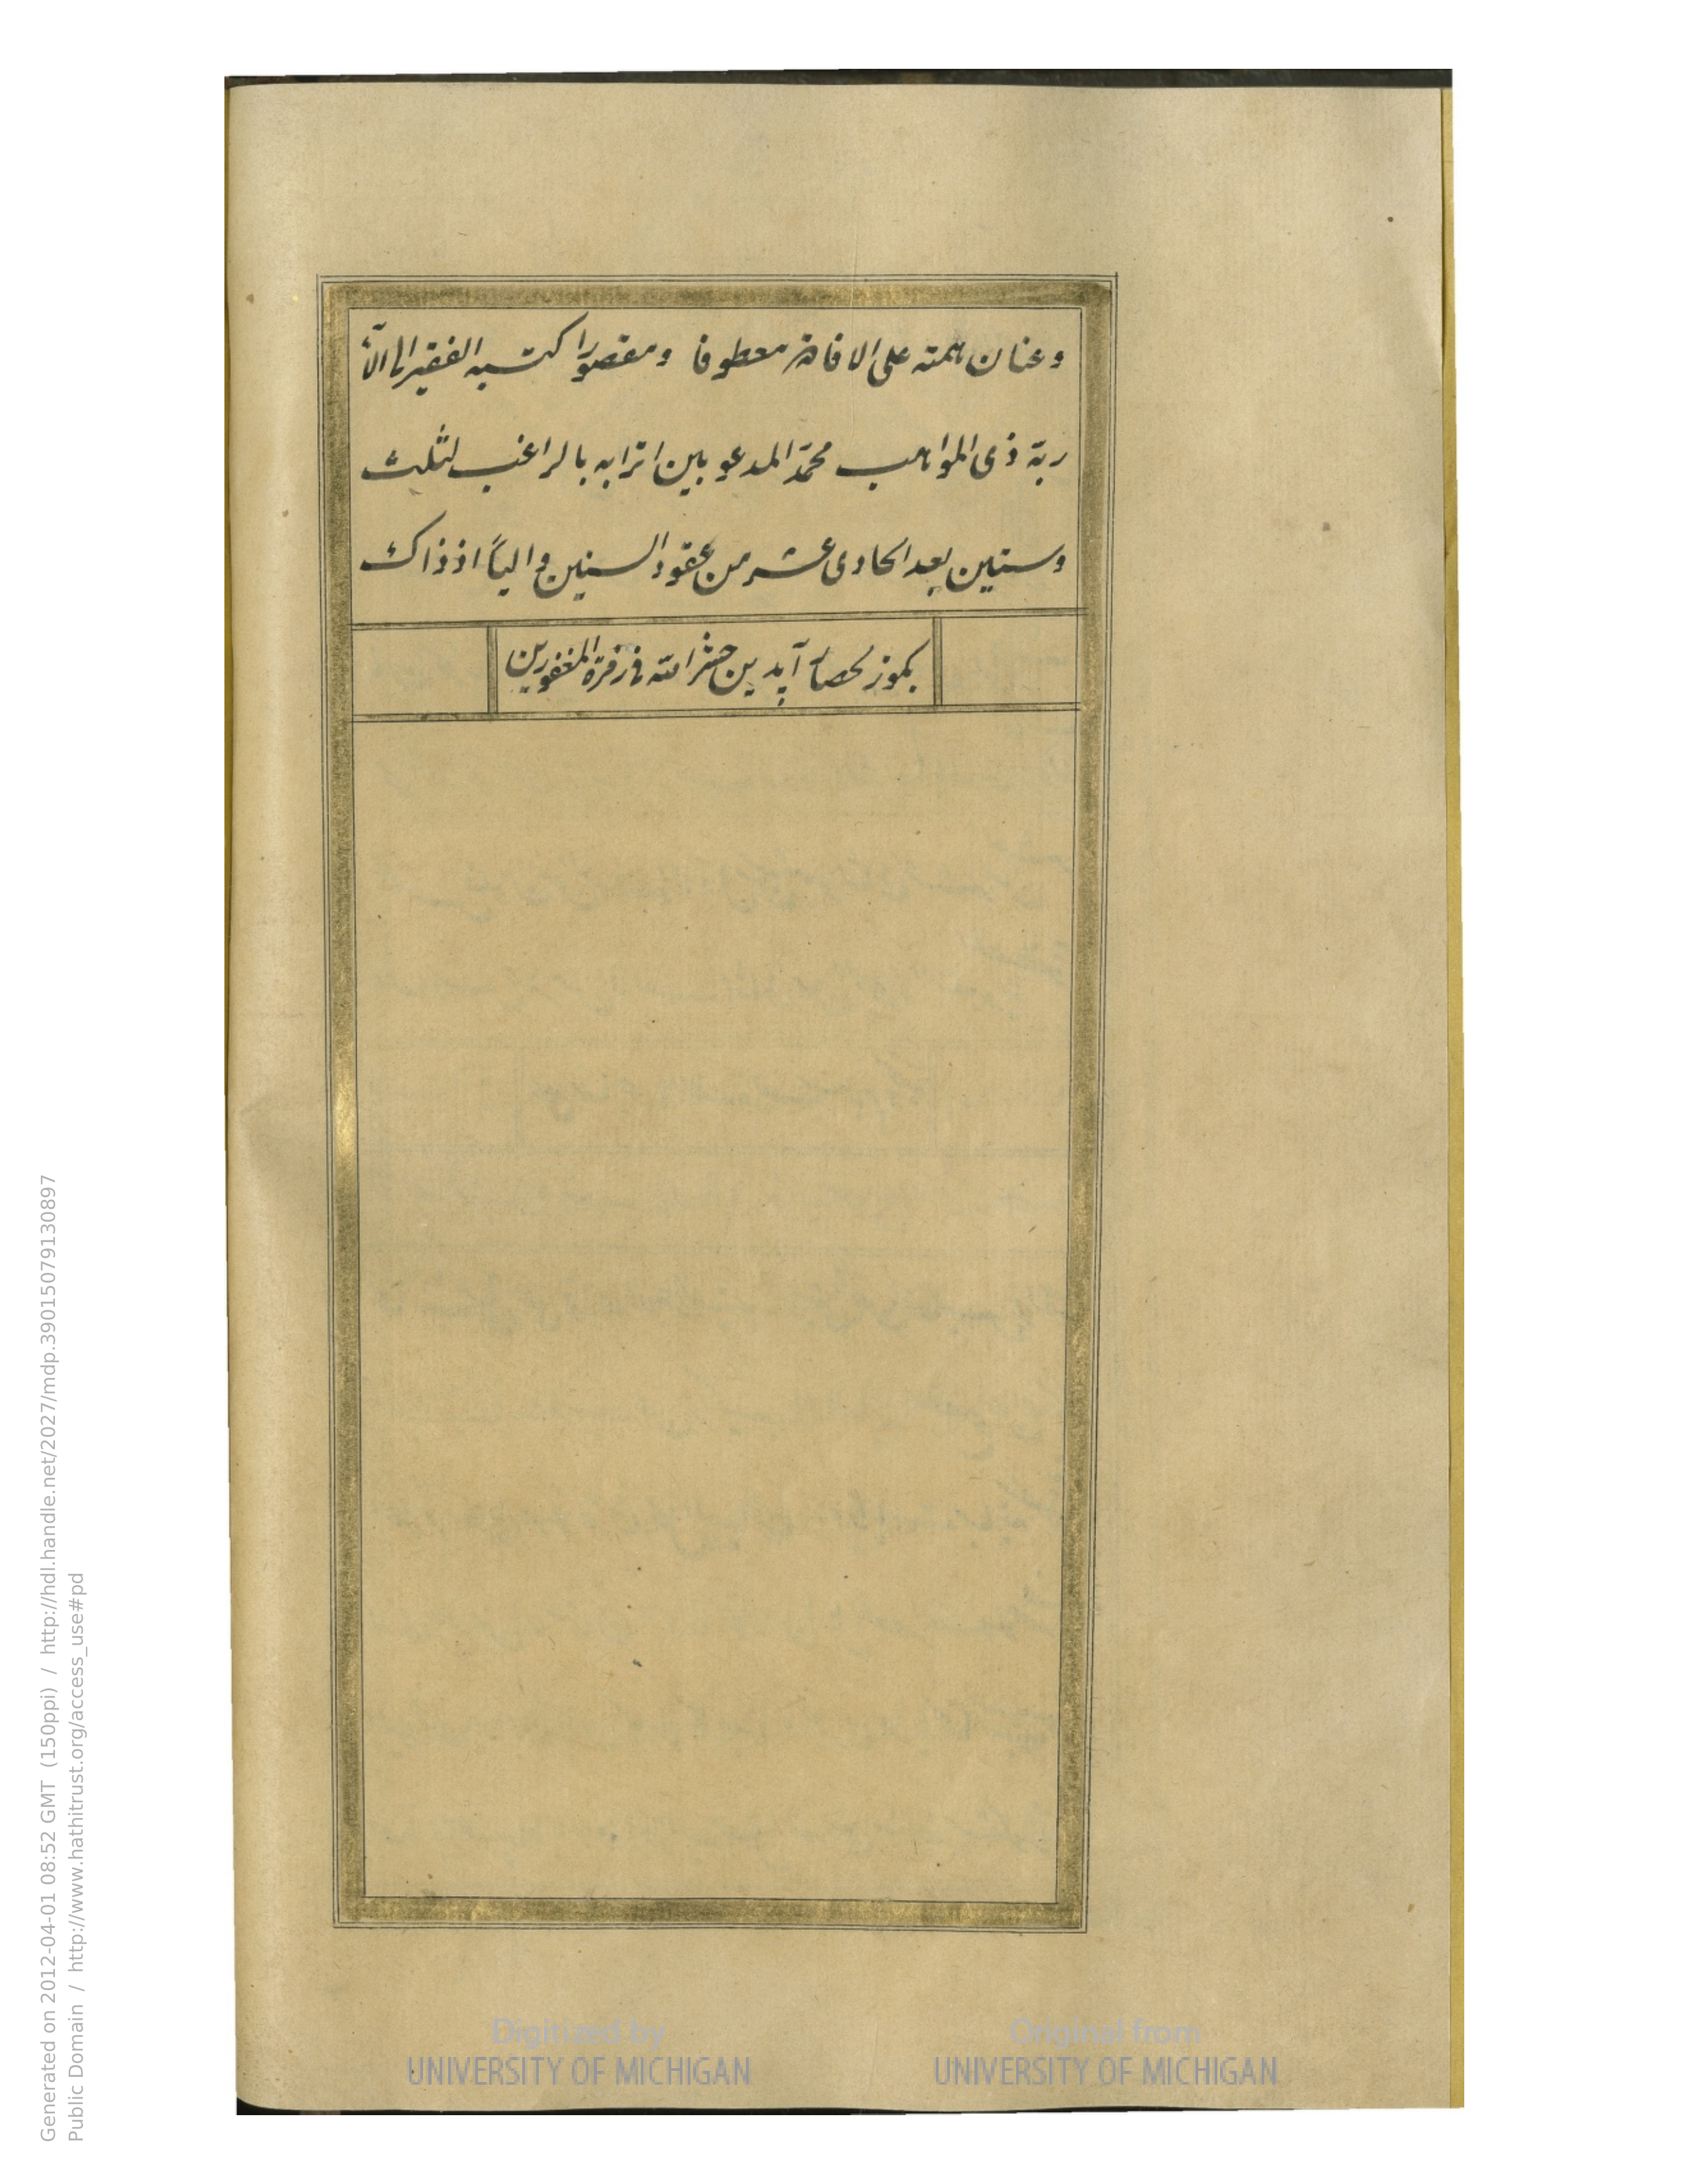 وعنان همته على الافاضة معطوفا ومقصورا كتبه الفقير الى آلاء
ربه ذى المواهب محمد المدعو بين اترابه بالراغب لثلث
وستين بعد الحادى عشر من عقود السنين واليا اذ ذاك
حشر الله فى زمرة المغفورين
Digitized by
UNIVERSITY OF MICHIGAN
Original from
UNIVERSITY OF MICHIGAN
Generated on 2012-04-01 08:52 GMT (150ppi) / http://hdl.handle.net/2027/mdp.39015079130897
Public Domain / http://www.hathitrust.org/access_use#pd